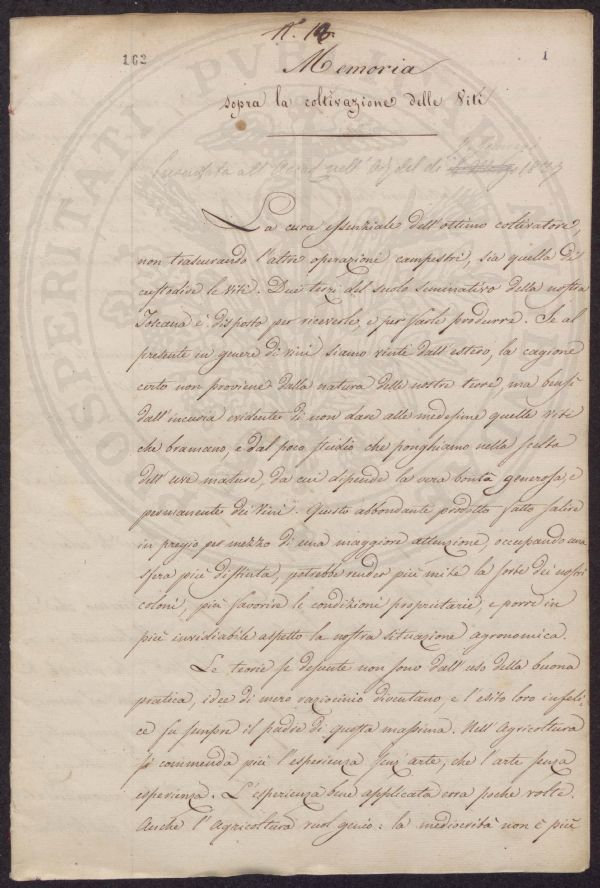 N.° 18.
162
1
Memoria
sopra la coltivazione delle Viti
Presentata all' Accad. nell' Ad. del dì 1837
La cura essenziale dell'ottimo coltivatore,
non trascurando l'altre operazioni campestri, sia quella di
custodire le viti. Due terzi del suolo seminativo della nostra
Toscana è disposto per riceverle, e per farle produrre. Se al
presente in genere di vini siamo vinti dall'estero, la cagione
certo non proviene dalla natura delle nostre terre, ma bensì
dall'incuria evidente di non dare alle medesime quelle viti
che bramano, e dal poco studio che ponghiamo nella scelta
dell'uve mature, da cui dipende la vera bontà generosa, e
permanente dei Vini. Questo abbondante prodotto fatto salire
in pregio per mezzo di una maggiore attenzione, occupando una
sfera più distinta, potrebbe render più mite la sorte dei nostri
coloni, più favorire le condizioni proprietarie, e porre in
più invidiabile aspetto la nostra situazione agronomica.
Le teorie se desunte non sono dall'uso della buona
pratica, idee di mero raziocinio diventano, e l'esito loro infeli-
ce fu sempre il padre di questa massima. Nell'Agricoltura
si commenda più l'esperienza senz'arte, che l'arte senza
esperienza. L'esperienza bene applicata erra poche volte.
Anche l'Agricoltura vuol genio: la mediocrità non è più